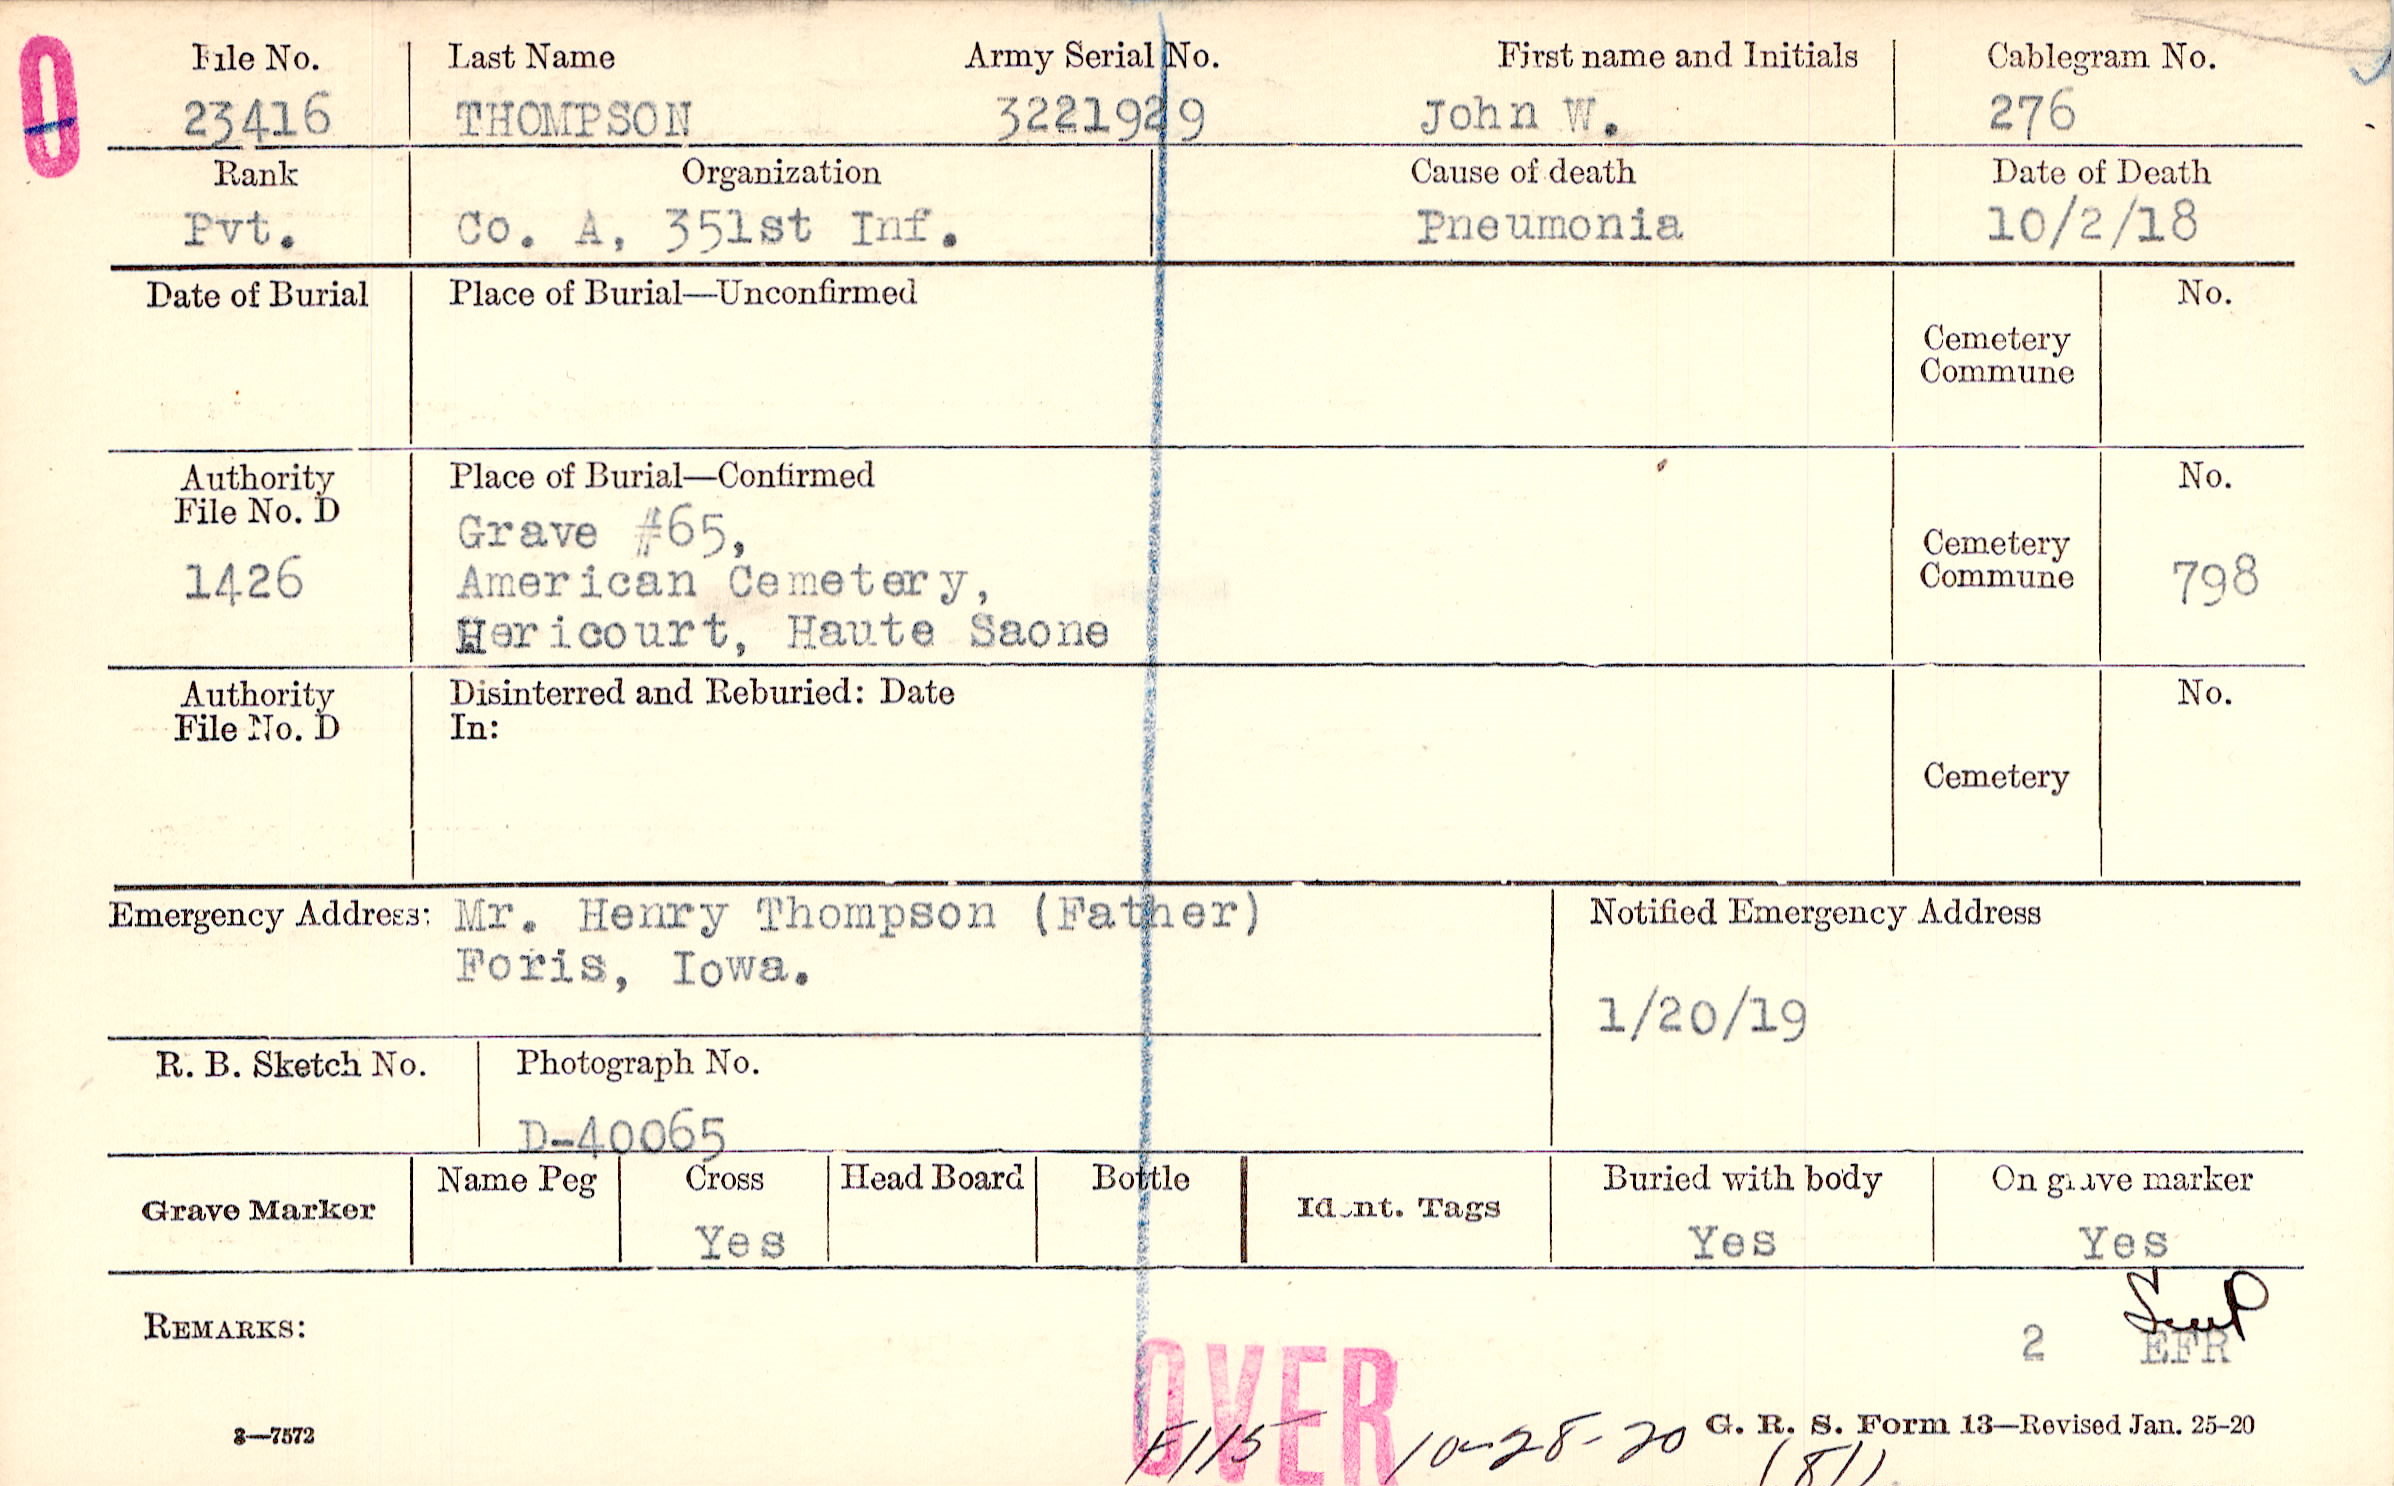 O
File No. Last Name Army Serial No. First name and Initials Cablegram No.
23416 THOMPSON 3221929 John W. 276
Rank Organization Cause of death Date of Death
Pvt. Co. A, 351st Inf. Pneumonia 10/2/18
Date of Burial Place of Burial—Unconfirmed No.
Cemetery
Commune
Authority Place of Burial—Confirmed No.
File No. D
Grave #65,
1426 American Cemetery, Cemetery
Commune 798
Hericourt, Haute Saone
Authority Disinterred and Reburied: Date No.
File No. D In:
Cemetery
Emergency Address: Mr. Henry Thompson (Father) Notified Emergency Address
Foris, Iowa.
1/20/19
R. B. Sketch No. Photograph No.
D-40065
Grave Marker Name Peg Cross Head Board Bottle Ident. Tags Buried with body On grave marker
Yes Yes Yes
REMARKS: 2 EFR
OVER
3—7572 F115 10-28-20 G. R. S. Form 13—Revised Jan. 25-20